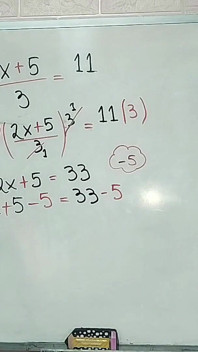 x+5/3 = 11
(2x+5/3)3 = 11(3)
1
1
-5
2x+5 = 33
+5-5 = 33-5